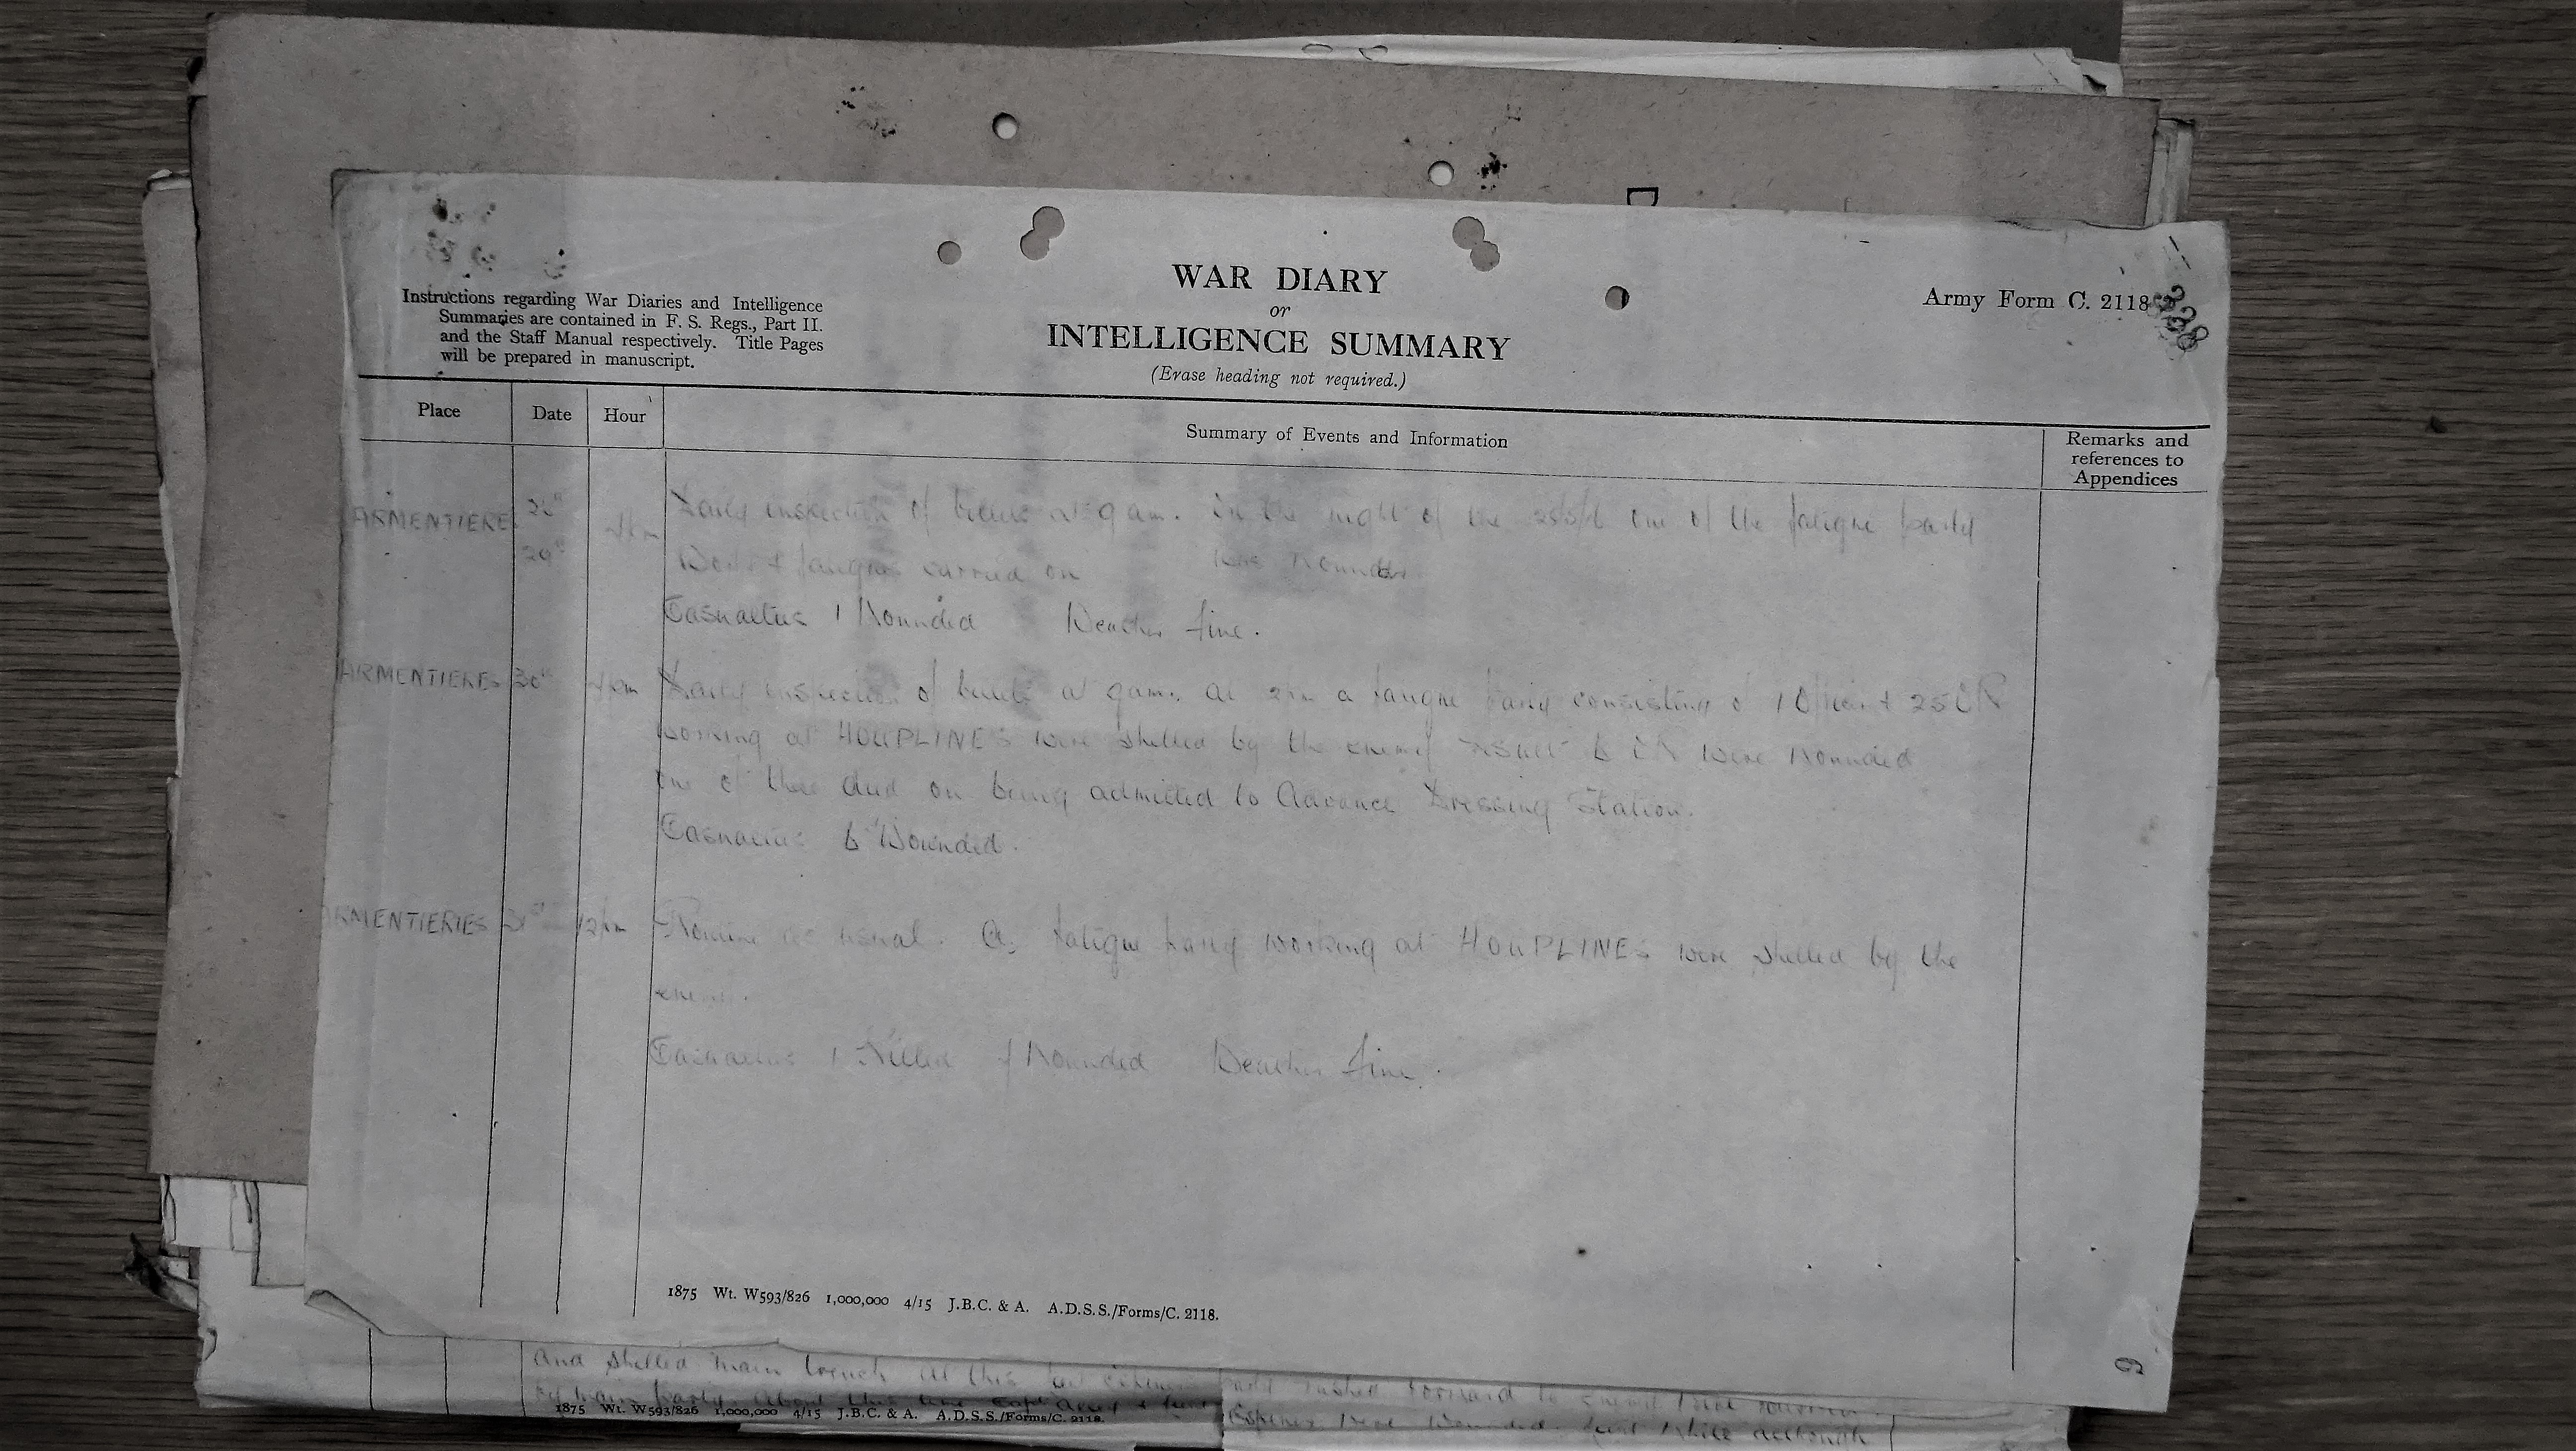 WAR DIARY
or
INTELLIGENCE SUMMARY
(Erase heading not required.)
Instructions regarding War Diaries and Intelligence
Summaries are contained in F. S. Regs., Part II.
and the Staff Manual respectively. Title Pages
will be prepared in manuscript.
Army Form C. 2118
Place Date Hour Summary of Events and Information Remarks and
references to
Appendices
ARMENTIERES Daily inspection of billets at 9 am. In the night of the one of the fatigue party
29th Work & fatigues carried on was wounded
Casualties 1 Wounded Weather fine.
ARMENTIERES 30th Daily inspection of billets at 9 am. At 2pm a fatigue party consisting of 1 Officer & 25 OR
working at HOUPLINES were shelled by the enemy result 6 OR were wounded
one of these died on being admitted to Advance Dressing Station.
Casualties 6 Wounded.
ARMENTIERIES 31st 12pm Routine as usual. A fatigue party working at HOUPLINES were shelled by the
enemy.
Casualties 1 Killed Wounded Weather fine.
1875 Wt. W593/826 1,000,000 4/15 J.B.C. & A. A.D.S.S./Forms/C. 2118.
6
and shelled main trench at this rushed forward to enemy
by main party. About this time Capt
1875 Wt. W593/826 1,000,000 4/15 J.B.C. & A. A.D.S.S./Forms/C. 2118.
were wounded. although